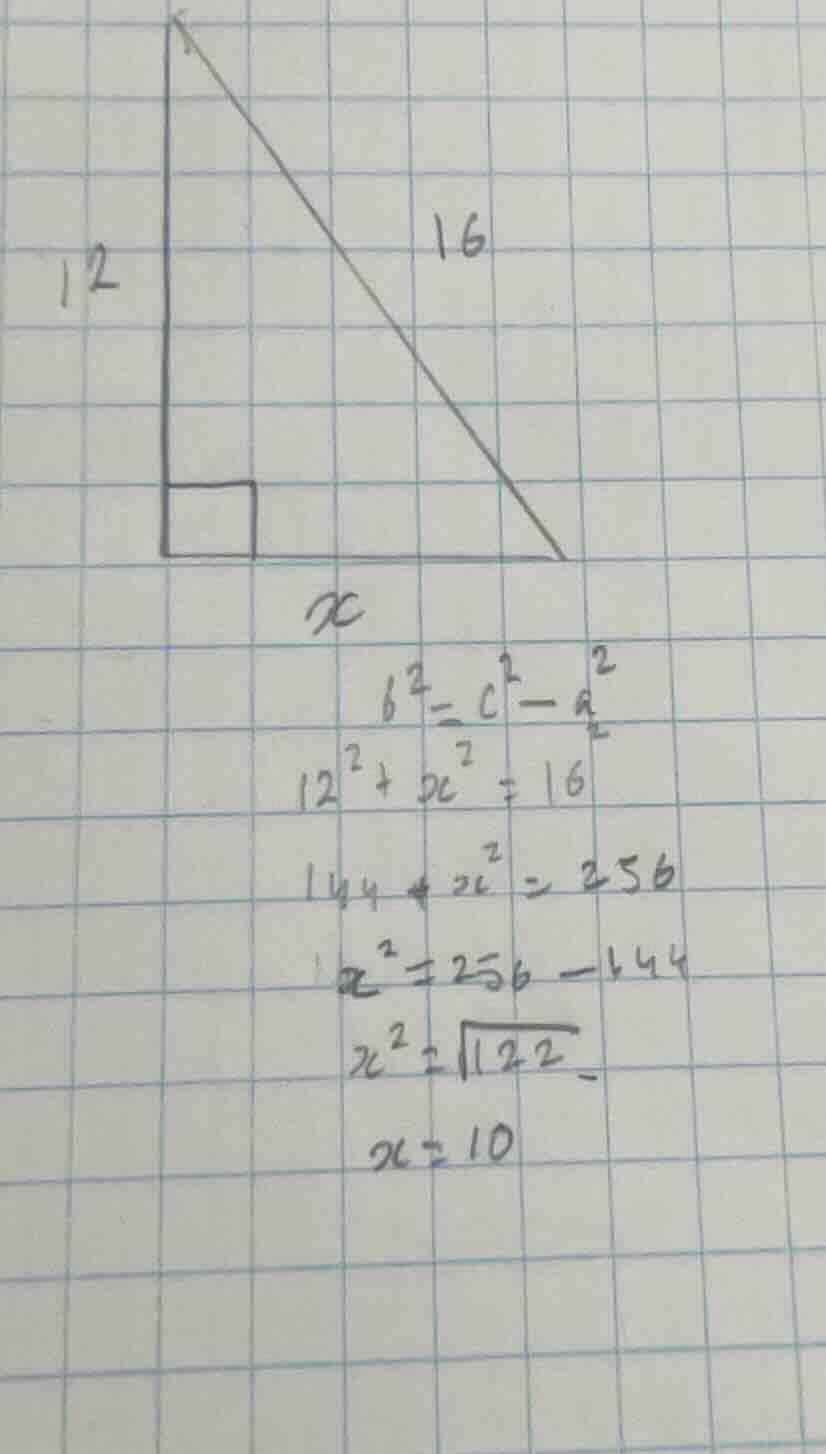 12
16
x
b² = c² - a²
12² + x² = 16²
144 + x² = 256
x² = 256 - 144
x² = √122
x = 10